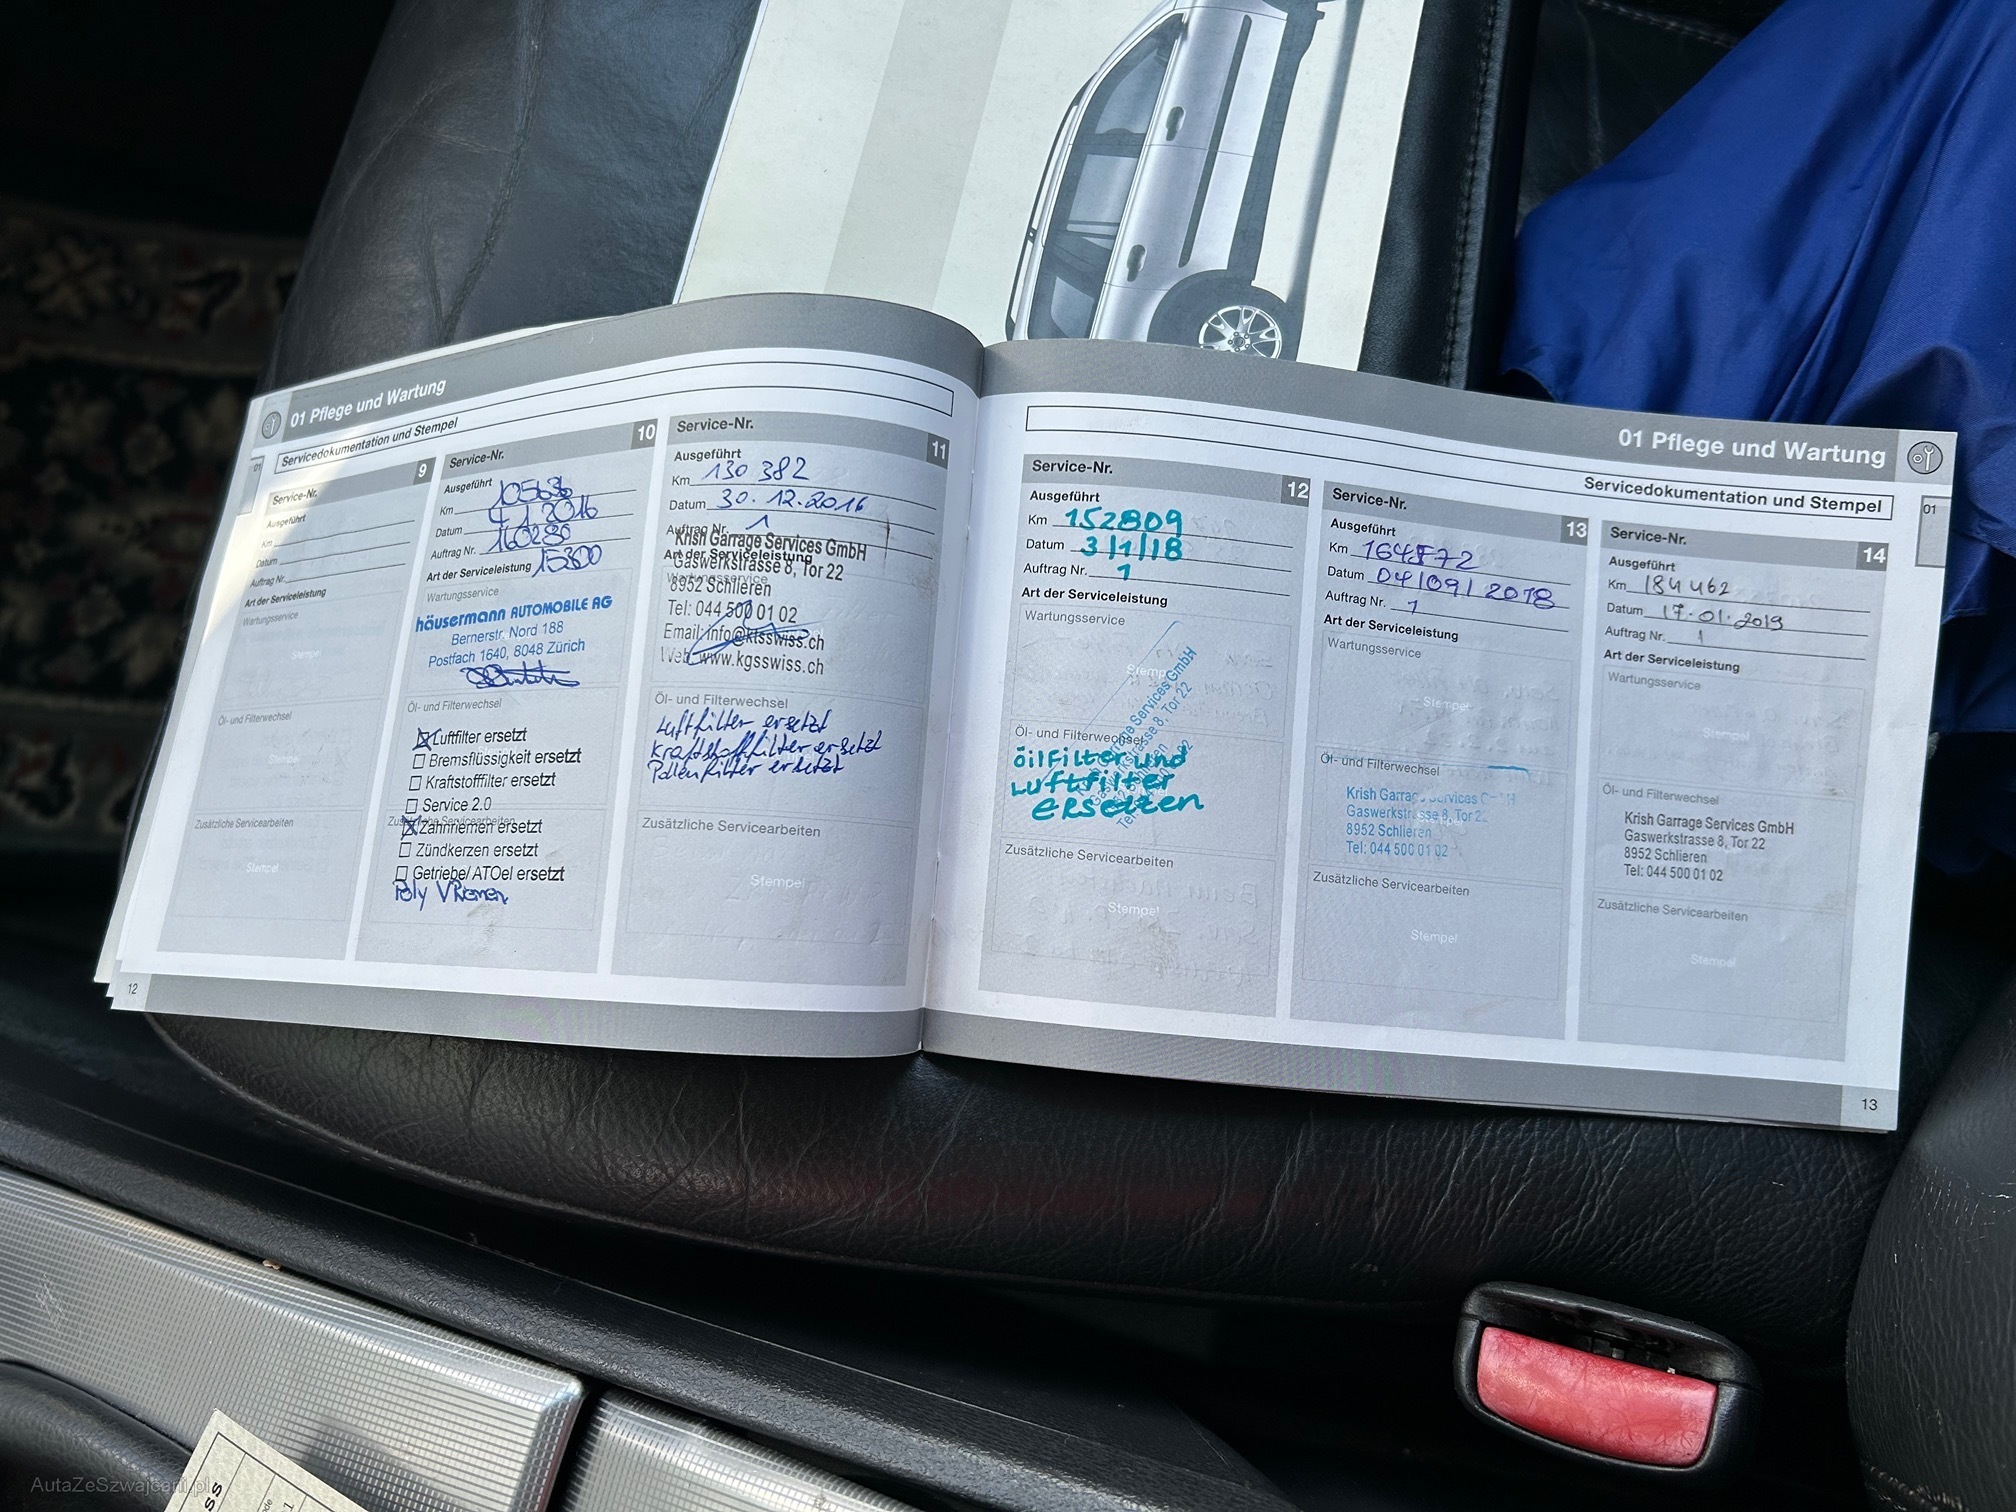 01 Pflege und Wartung
01
Servicedokumentation und Stempel
Service-Nr.
9
Ausgeführt
Km
Datum
Auftrag Nr.
Art der Serviceleistung
Wartungsservice
Stempel
Öl- und Filterwechsel
Stempel
Zusätzliche Servicearbeiten
Stempel
12
Service-Nr.
10
Ausgeführt
Km 105636
Datum 4.1.2016
Auftrag Nr. 160280
Art der Serviceleistung 15300
Wartungsservice
häusermann AUTOMOBILE AG
Bernerstr. Nord 188
Postfach 1640, 8048 Zürich
Öl- und Filterwechsel
Luftfilter ersetzt
Bremsflüssigkeit ersetzt
Kraftstofffilter ersetzt
Service 2.0
Zusätzliche Servicearbeiten
Zahnriemen ersetzt
Zündkerzen ersetzt
Getriebe/ ATOel ersetzt
Poly VRiemen
Service-Nr.
11
Ausgeführt
Km 130 382
Datum 30.12.2016
Auftrag Nr. 1
Krish Garrage Services GmbH
Art der Serviceleistung
Gaswerkstrasse 8, Tor 22
Wartungsservice
8952 Schlieren
Tel: 044 500 01 02
Email: info@ktsswiss.ch
Web: www.kgsswiss.ch
Öl- und Filterwechsel
Luftfilter ersetzt
Kraftstofffilter ersetzt
Pollenfilter ersetzt
Zusätzliche Servicearbeiten
Stempel
01 Pflege und Wartung
Servicedokumentation und Stempel
01
Service-Nr.
12
Ausgeführt
Km 152809
Datum 3/1/18
Auftrag Nr. 1
Art der Serviceleistung
Wartungsservice
Stempel
Services GmbH
Gaswerkstrasse 8, Tor 22
Öl- und Filterwechsel
öilfilter und
Luftfilter
ersetzen
Zusätzliche Servicearbeiten
Stempel
Service-Nr.
13
Ausgeführt
Km 164572
Datum 04/09/2018
Auftrag Nr. 1
Art der Serviceleistung
Wartungsservice
Stempel
Öl- und Filterwechsel
Krish Garrage Services GmbH
Gaswerkstrasse 8, Tor 22
8952 Schlieren
Tel: 044 500 01 02
Zusätzliche Servicearbeiten
Stempel
Service-Nr.
14
Ausgeführt
Km 184462
Datum 17.01.2019
Auftrag Nr. 1
Art der Serviceleistung
Wartungsservice
Stempel
Öl- und Filterwechsel
Krish Garrage Services GmbH
Gaswerkstrasse 8, Tor 22
8952 Schlieren
Tel: 044 500 01 02
Zusätzliche Servicearbeiten
Stempel
13
AutaZeSzwajcarii.pl